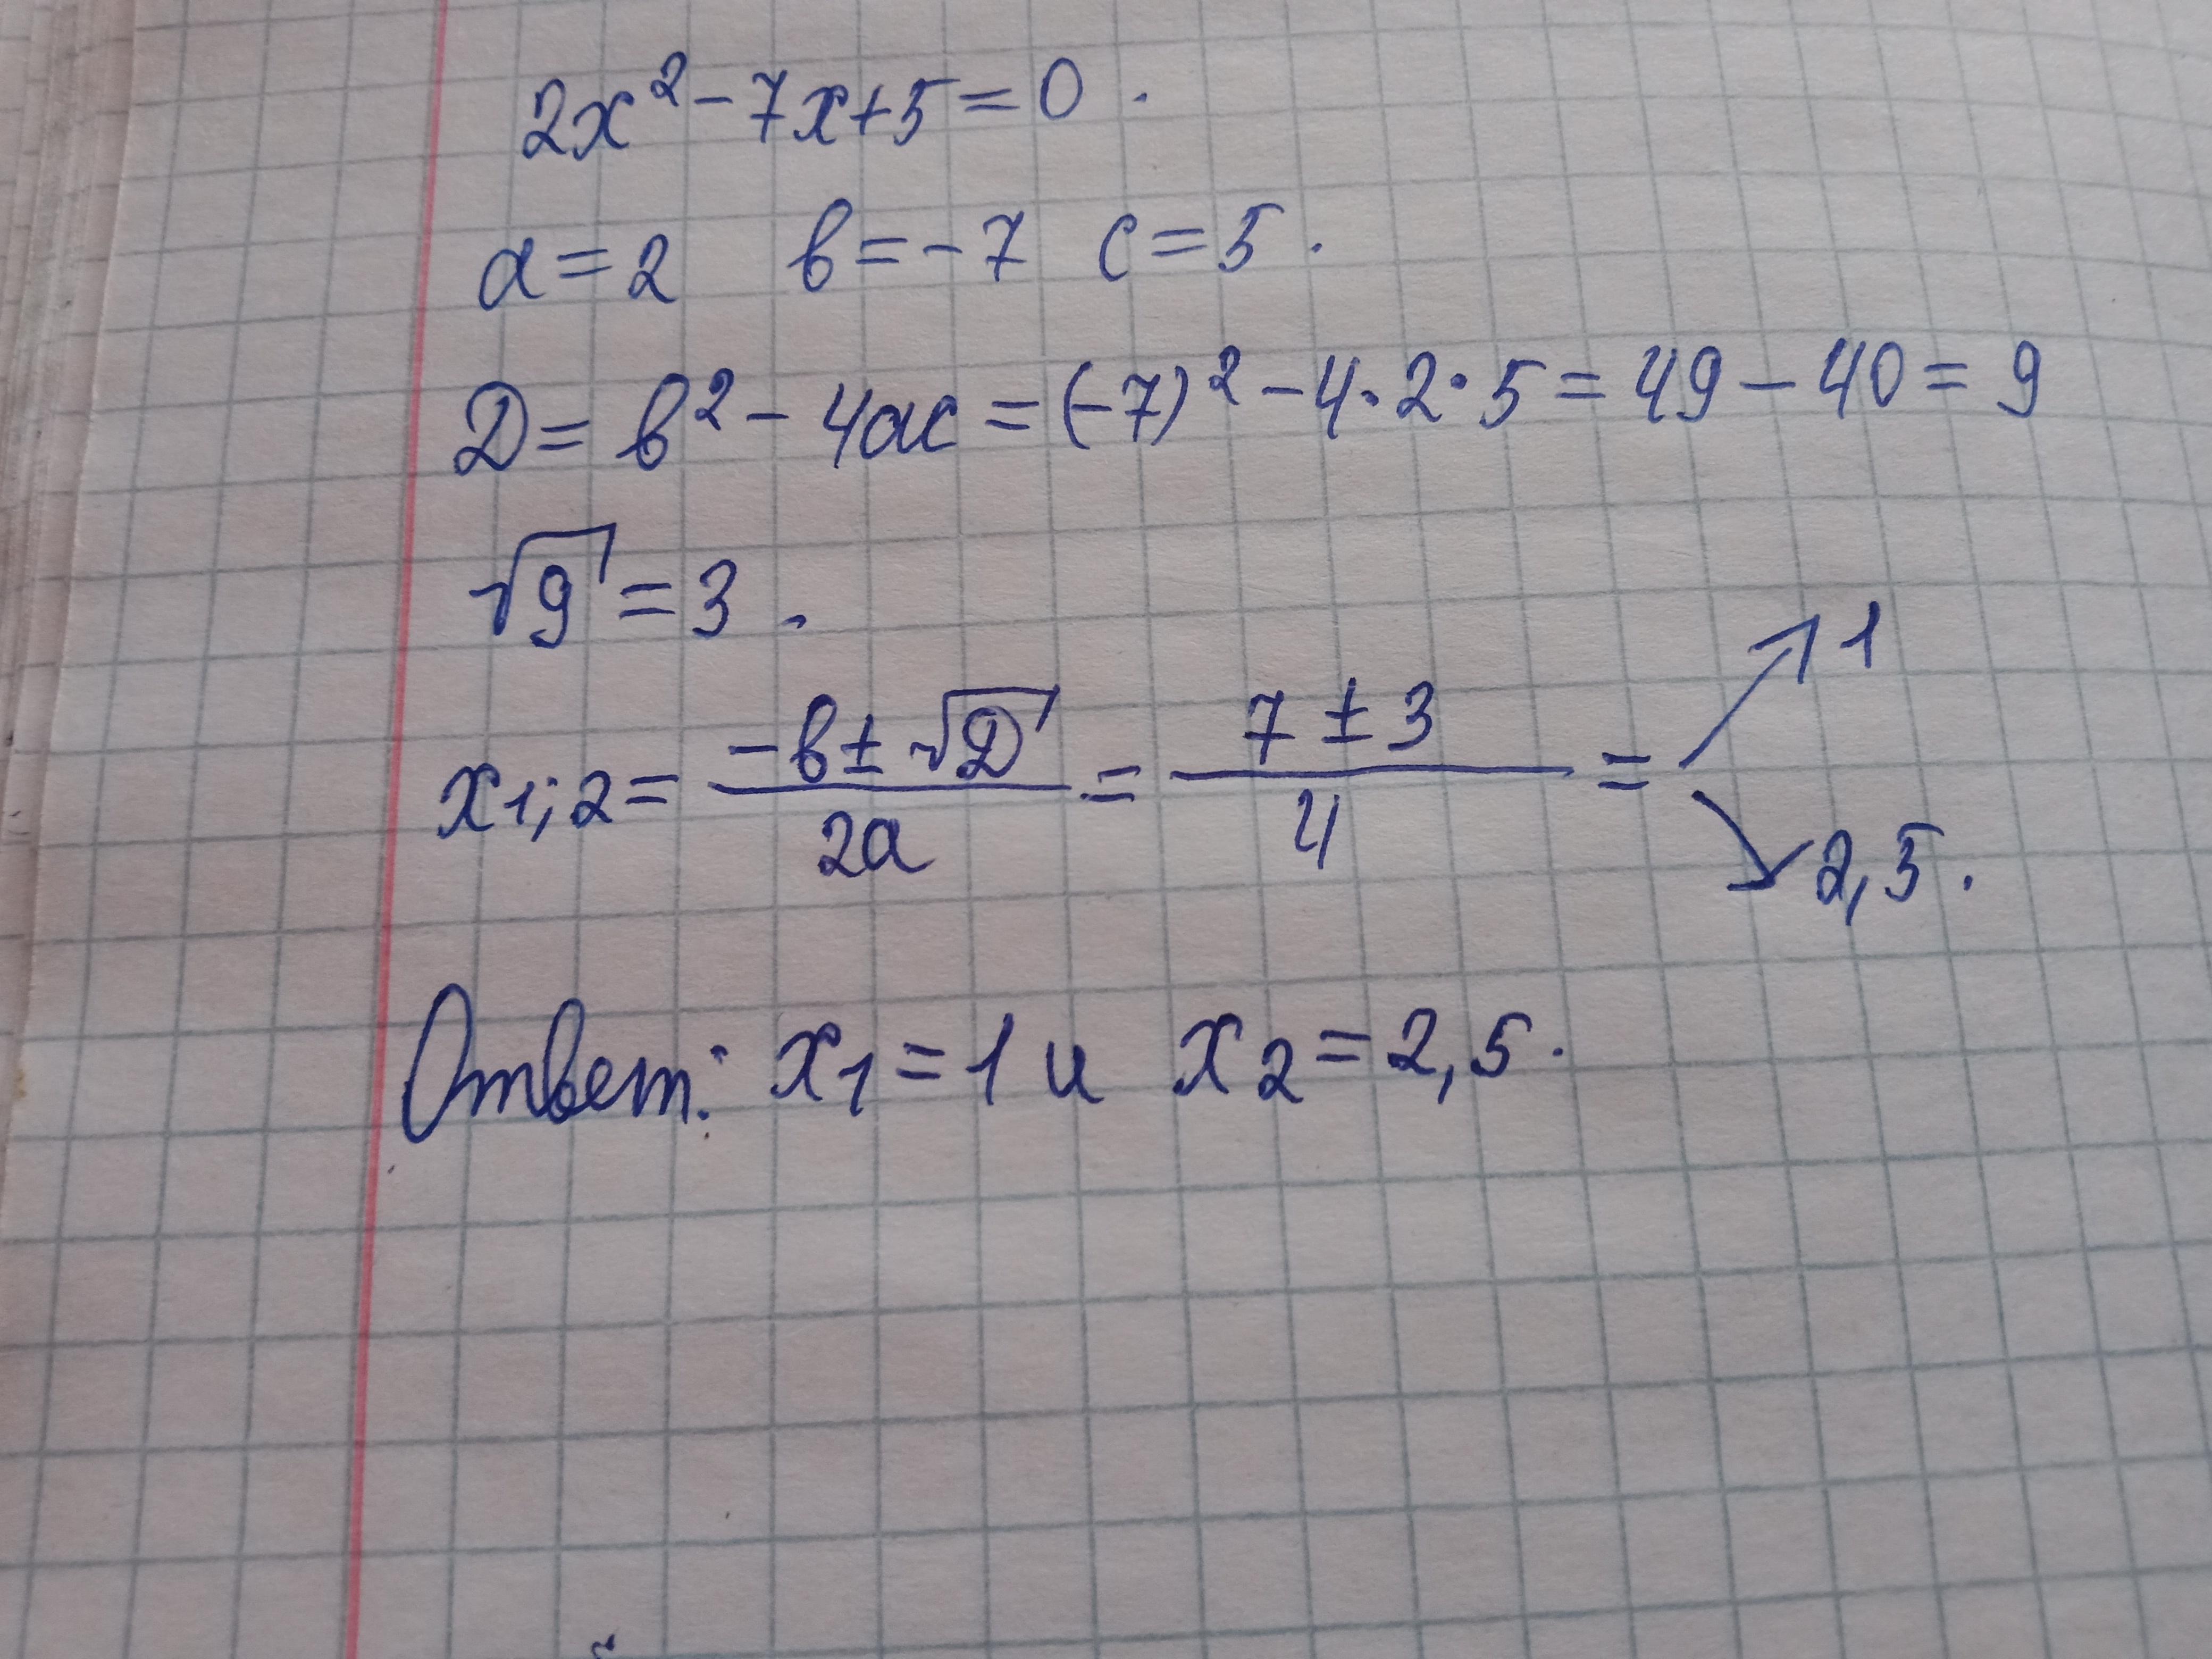 2x² - 7x + 5 = 0.
a = 2 в = -7 c = 5.
D = в² - 4ac = (-7)² - 4·2·5 = 49 - 40 = 9
√9 = 3.
x1;2 = (-в ± √D)/(2a) = (7 ± 3)/4 = ↗ 1 ↘ 2,5.
Ответ: x1 = 1 и x2 = 2,5.